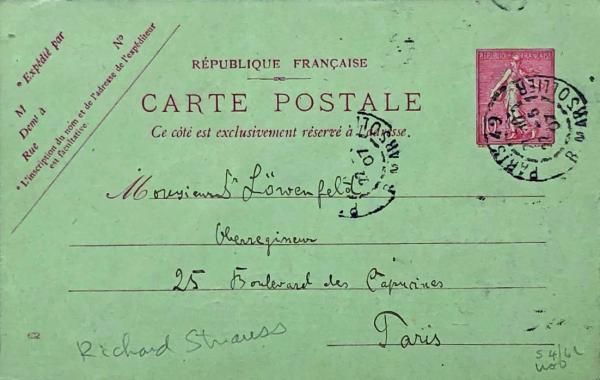 * Expédié par
N°
M
Demt à
Rue
* L'inscription du nom et de l'adresse de l'expéditeur
est facultative.
RÉPUBLIQUE FRANÇAISE
CARTE POSTALE
Ce côté est exclusivement réservé à l'adresse.
Monsieur Löwenfeld
Oberregisseur
25 Boulevard des Capucines
Paris
Richard Strauss
PARIS 64
07